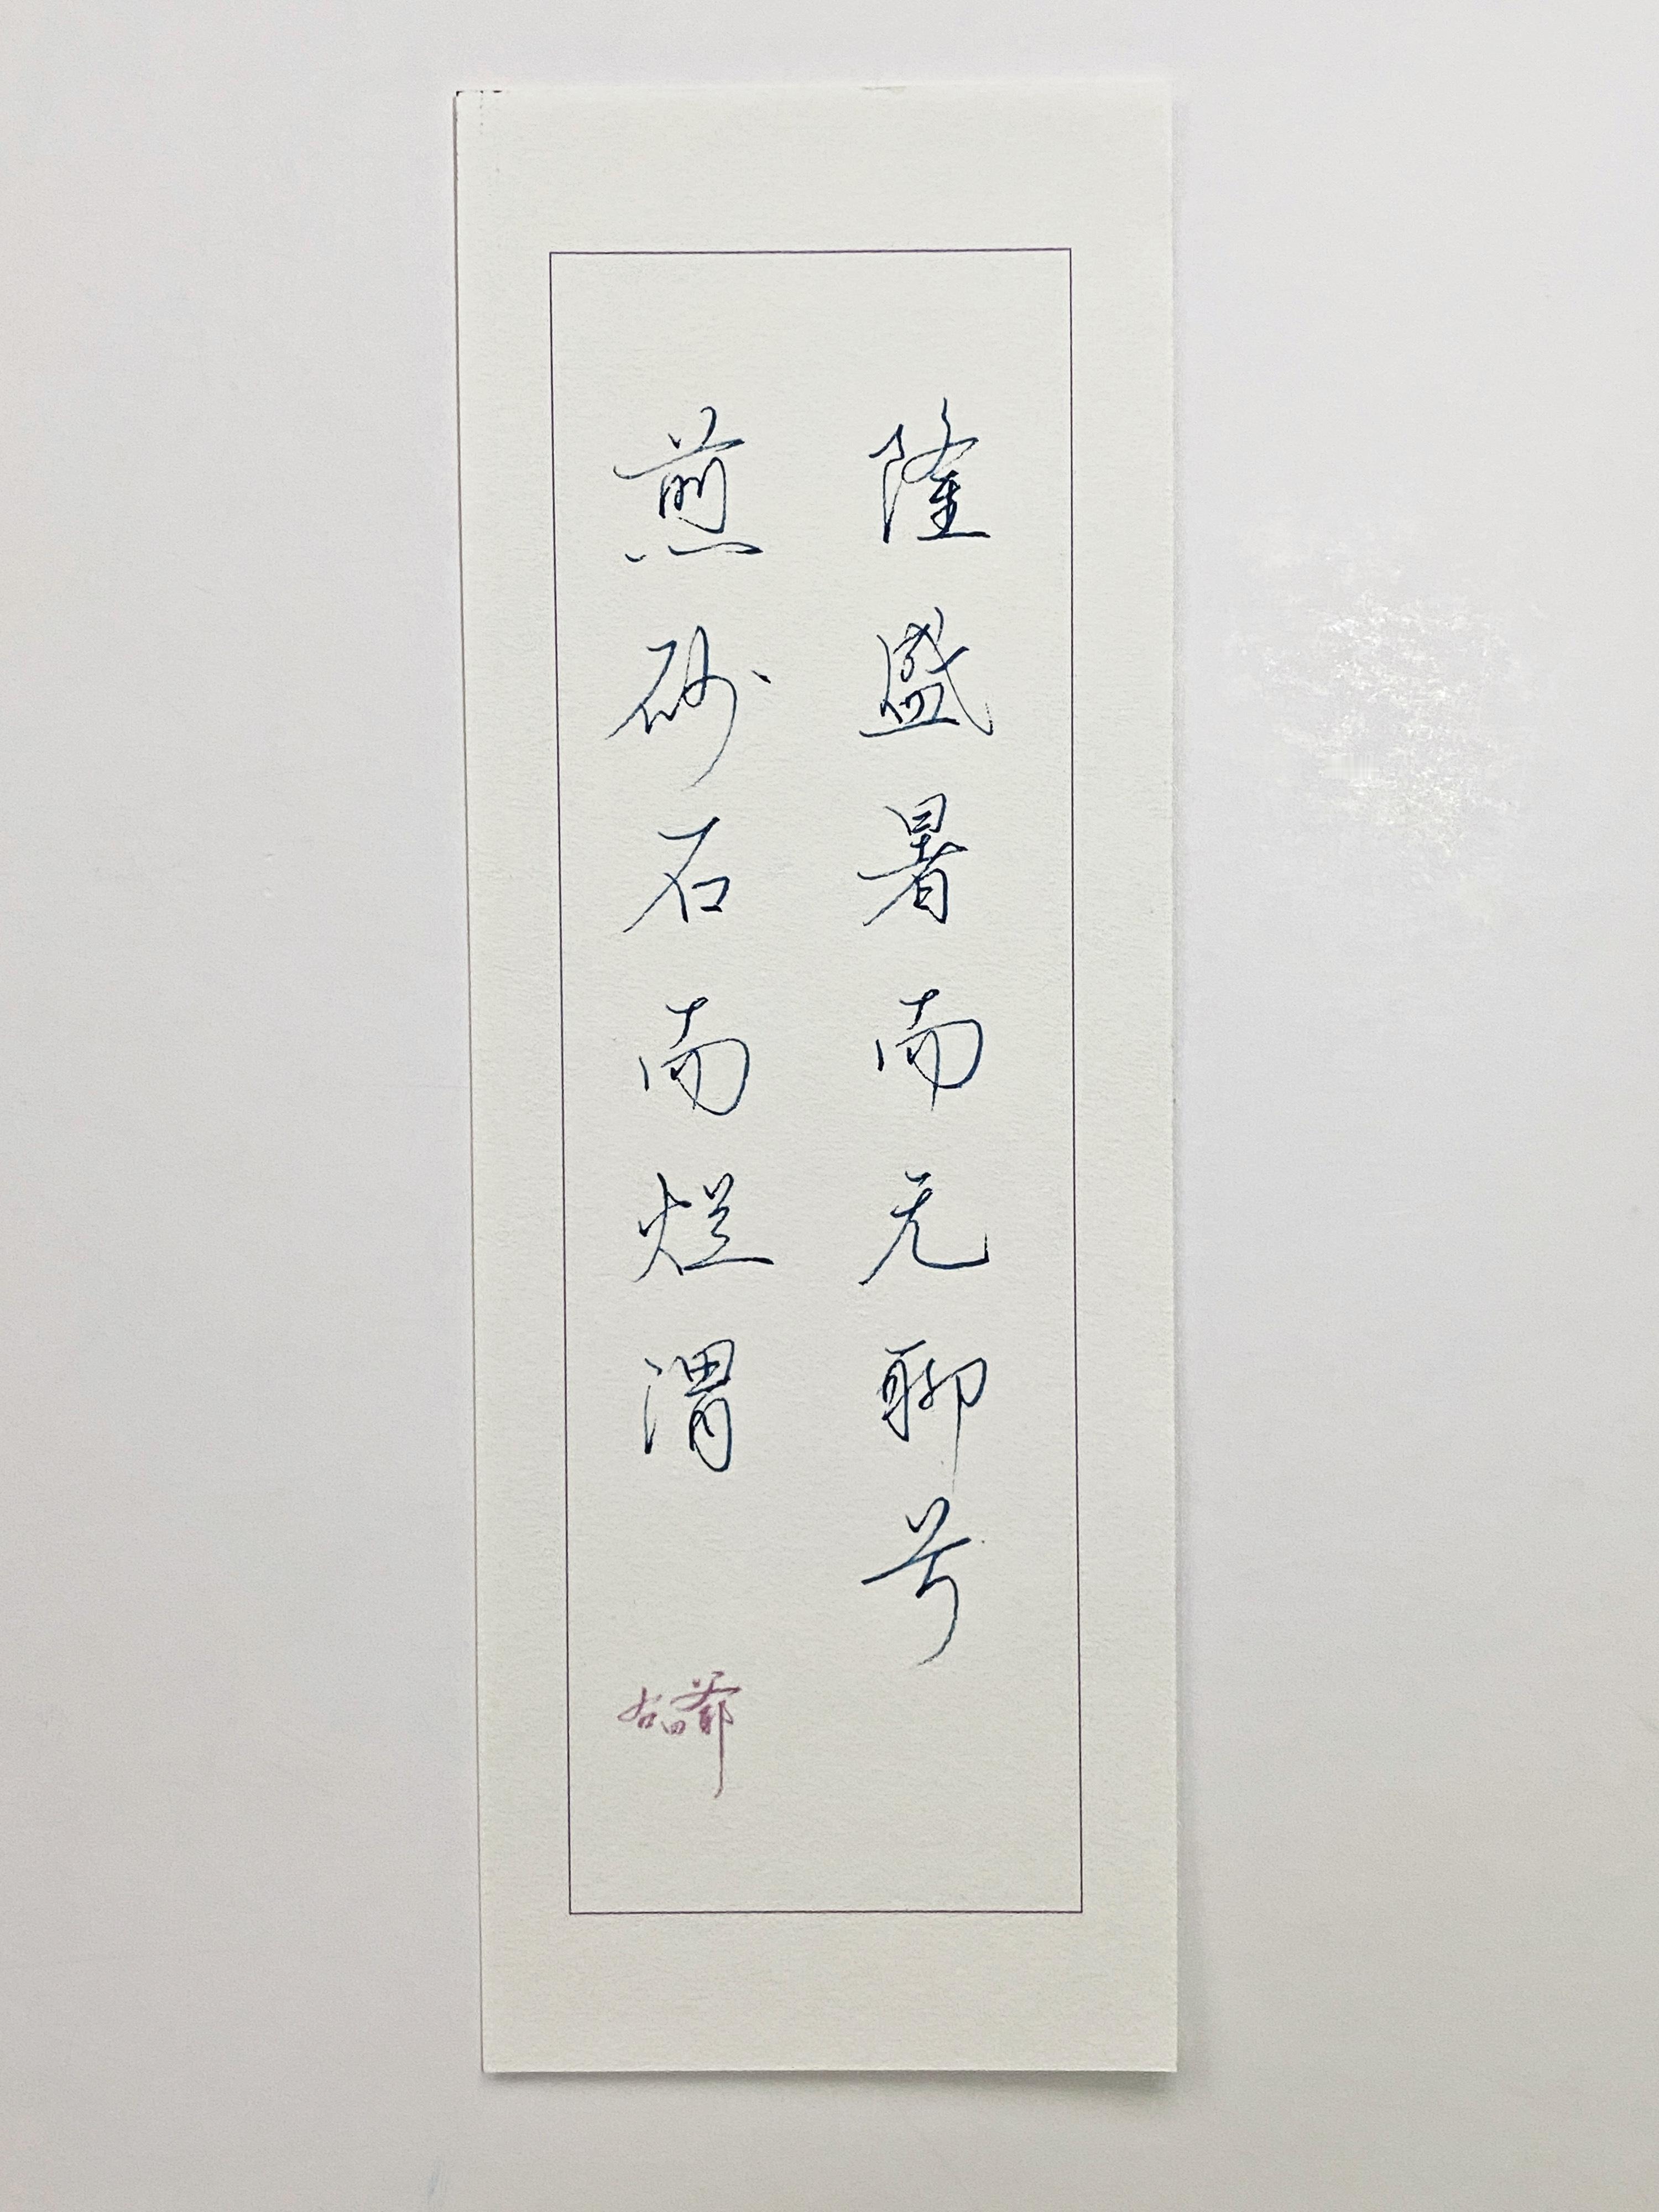 隆盛暑而无聊兮
煎砂石而烂渭